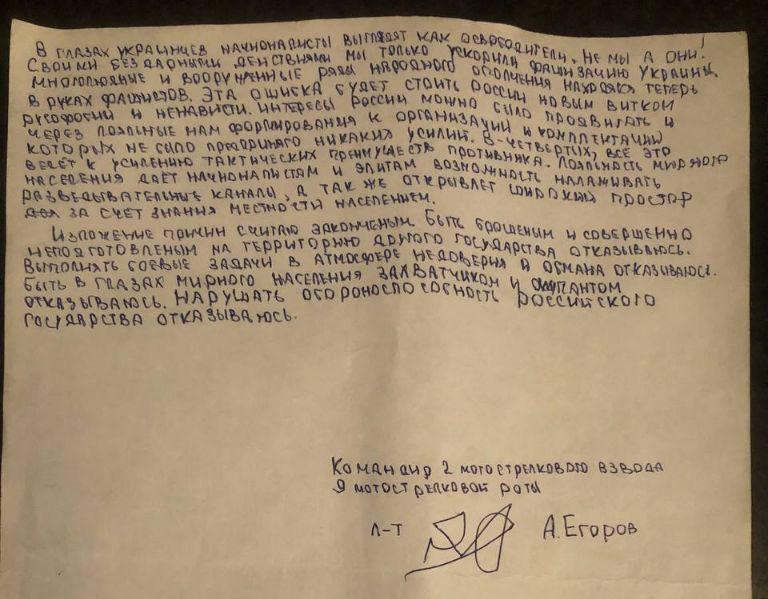 В глазах украинцев националисты выглядят как освободители. Не мы а они!
Своими бездарными действиями мы только ускорили фашизацию Украины.
Многолюдные и вооруженные ряды народного ополчения находятся теперь
в руках фашистов. Эта ошибка будет стоить России новым витком
русофобии и ненависти. Интересы России можно было продвигать и
через лояльные нам формирования к организации и комплектации
которых не было предпринято никаких усилий. В-четвертых, всё это
ведёт к усилению тактических преимуществ противника. Лояльность мирного
населения даёт националистам и элитам возможность налаживать
разведывательные каналы, а так же открывает широкий простор
для за счет знания местности населением.
Изложение причин считаю законченым. Быть брошеным и совершенно
неподготовленым на территорию другого государства отказываюсь.
Выполнять боевые задачи в атмосфере недоверия и обмана отказываюсь.
Быть в глазах мирного населения захватчиком и окупантом
отказываюсь. Нарушать обороноспособность российского
государства отказываюсь.
Командир 2 мотострелкового взвода
9 мотострелковой роты
л-т А.Егоров